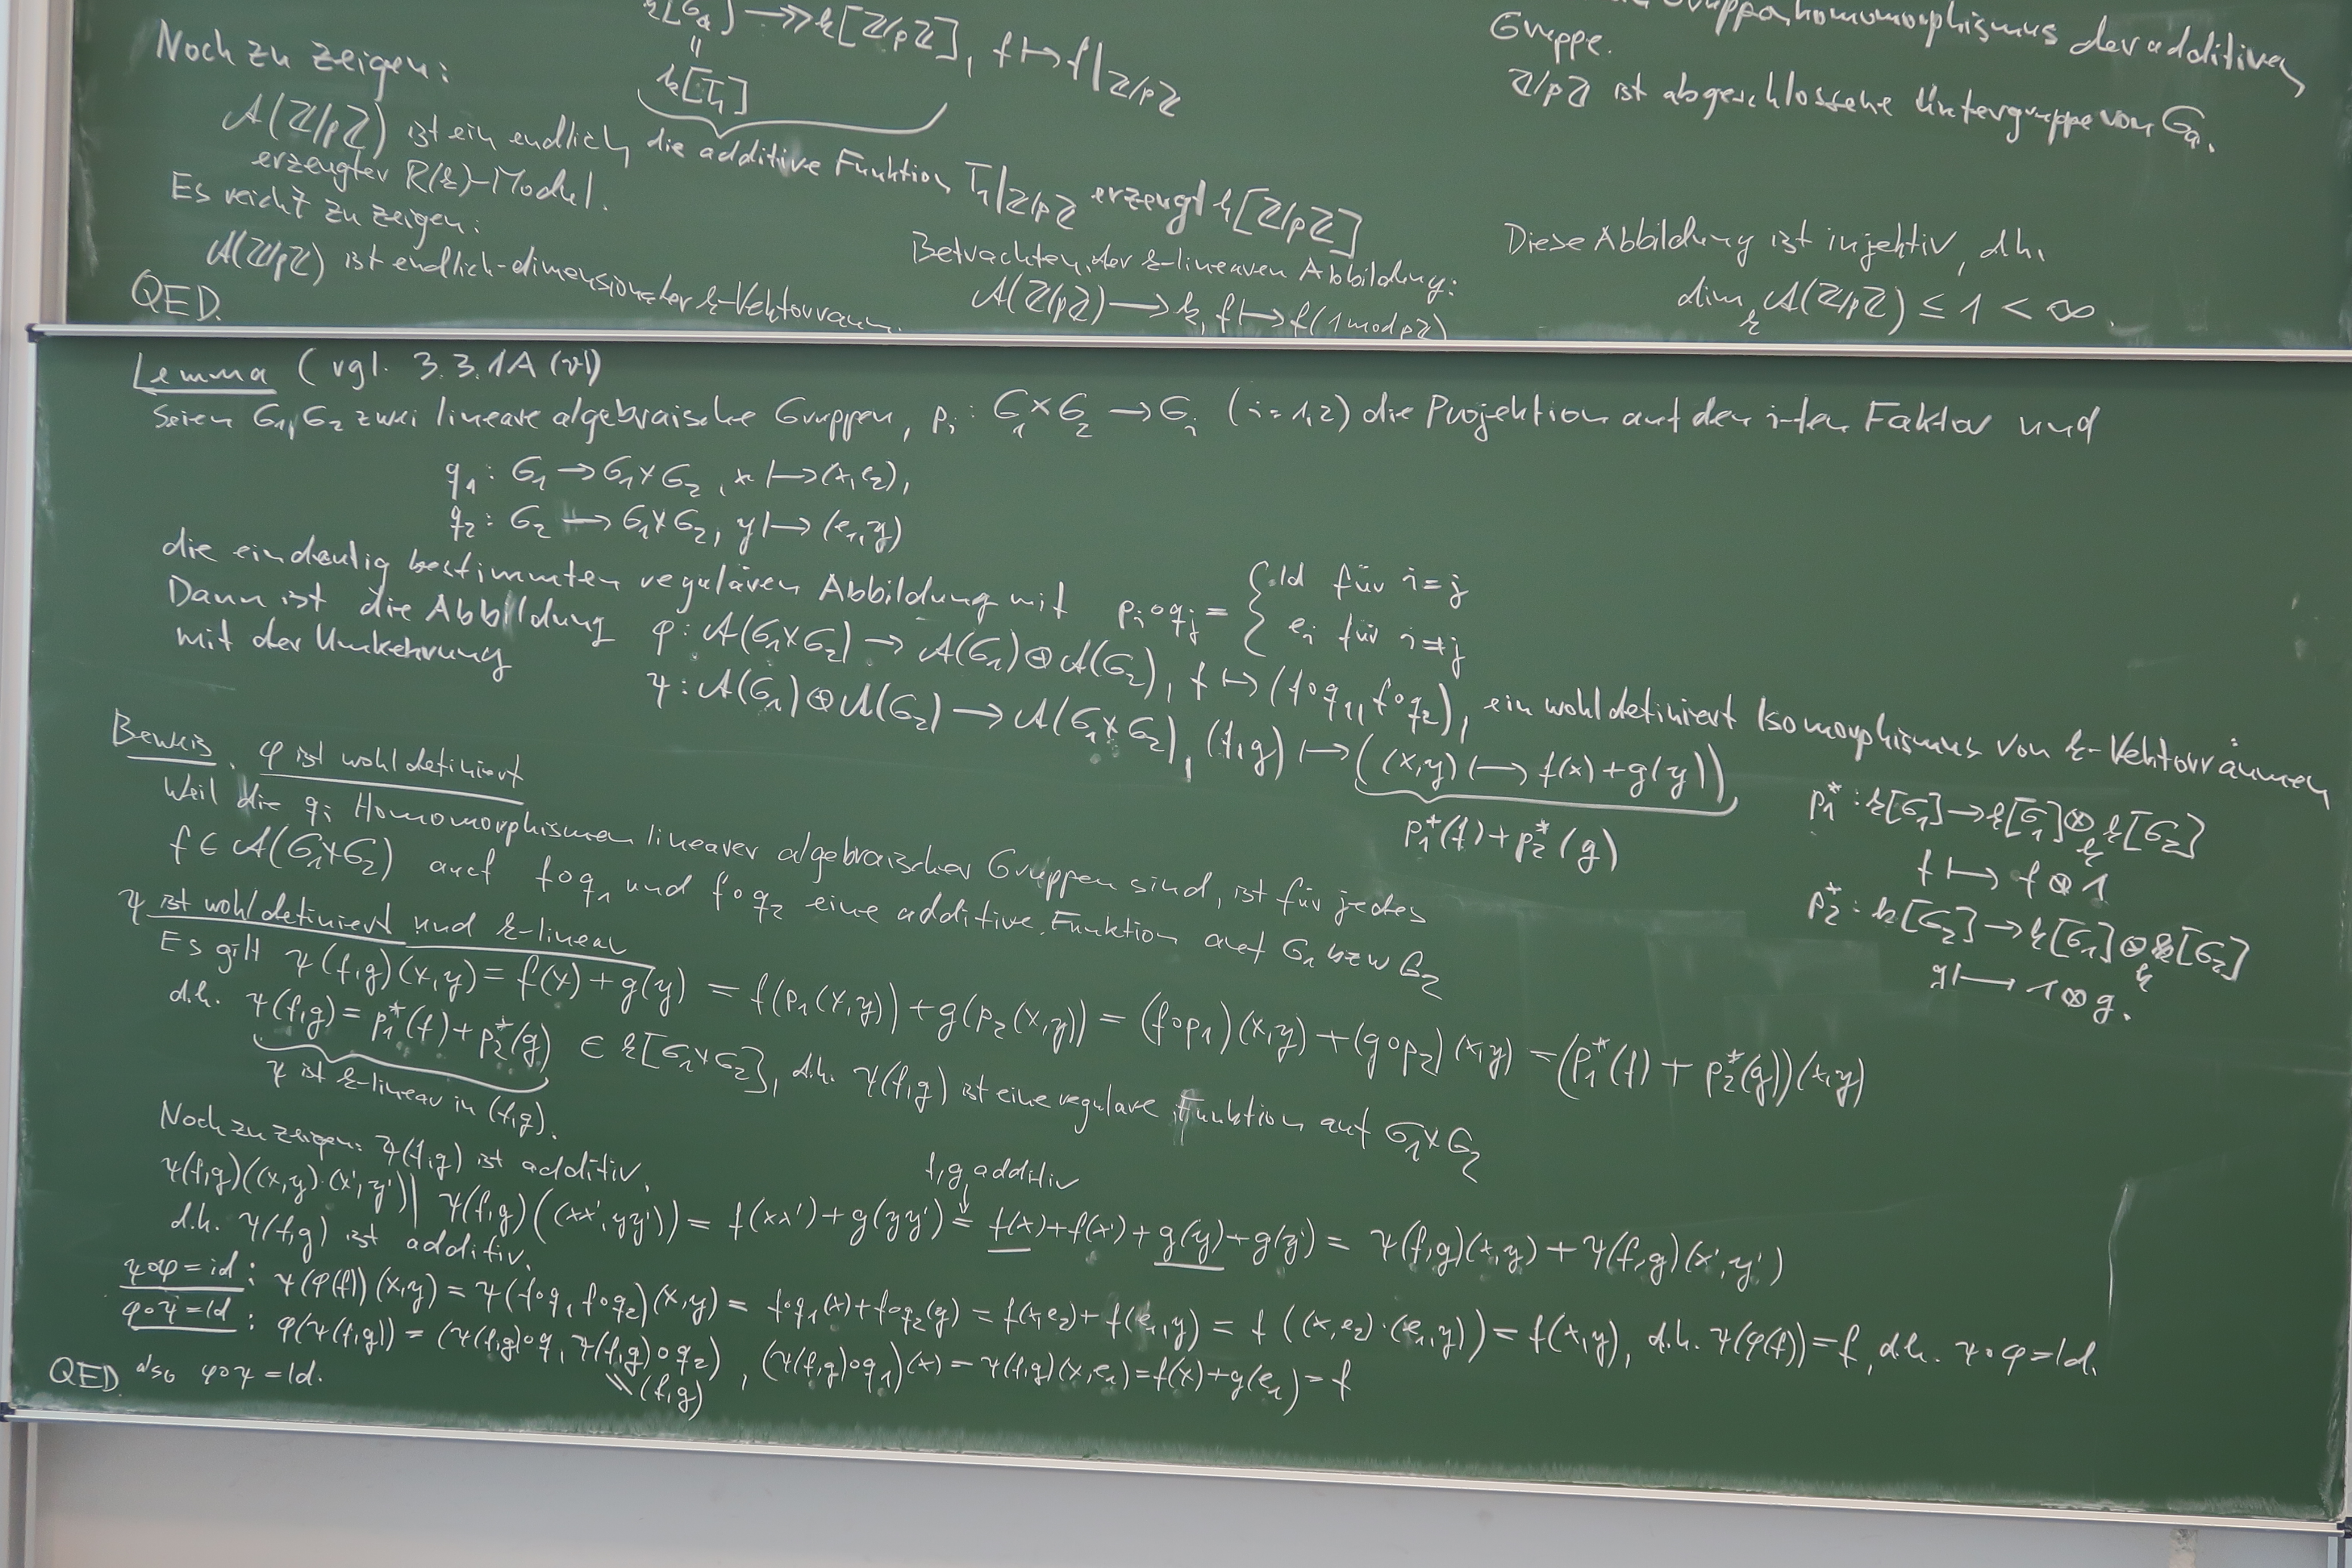 k[Gₐ] ↠ k[ℤ/pℤ], f ↦ f|ℤ/pℤ
‖
k[T₁]
Noch zu zeigen:
𝒜(ℤ/pℤ) ist ein endlich
erzeugter R(k)-Modul.
Es reicht zu zeigen:
𝒜(ℤ/pℤ) ist endlich-dimensionaler k-Vektorraum.
QED.
die additive Funktion T₁|ℤ/pℤ erzeugt k[ℤ/pℤ]
Betrachten der k-linearen Abbildung:
𝒜(ℤ/pℤ) → k, f ↦ f(1 mod pℤ)
Gruppenhomomorphismus der additiven
Gruppe.
ℤ/pℤ ist abgeschlossene Untergruppe von Gₐ.
Diese Abbildung ist injektiv, d.h.
dim_k 𝒜(ℤ/pℤ) ≤ 1 < ∞.
Lemma (vgl. 3.3.1A (vi))
Seien G₁, G₂ zwei lineare algebraische Gruppen, pᵢ: G₁×G₂ → Gᵢ (i=1,2) die Projektion auf den i-ten Faktor und
q₁: G₁ → G₁×G₂, x ↦ (x,e₂),
q₂: G₂ → G₁×G₂, y ↦ (e₁,y)
die eindeutig bestimmten regulären Abbildung mit pᵢ∘qⱼ = { Id für i=j
eᵢ für i≠j
Dann ist die Abbildung φ: 𝒜(G₁×G₂) → 𝒜(G₁)⊕𝒜(G₂), f ↦ (f∘q₁, f∘q₂), ein wohldefiniert Isomorphismus von k-Vektorräumen
mit der Umkehrung ψ: 𝒜(G₁)⊕𝒜(G₂) → 𝒜(G₁×G₂), (f,g) ↦ ((x,y) ↦ f(x)+g(y))
p₁*(f)+p₂*(g)
p₁*: k[G₁] → k[G₁]⊗_k k[G₂]
f ↦ f⊗1
p₂*: k[G₂] → k[G₁]⊗_k k[G₂]
g ↦ 1⊗g.
Beweis. φ ist wohldefiniert
Weil die qᵢ Homomorphismen linearer algebraischer Gruppen sind, ist für jedes
f ∈ 𝒜(G₁×G₂) auch f∘q₁ und f∘q₂ eine additive Funktion auf G₁ bzw G₂
ψ ist wohldefiniert und k-linear
Es gilt ψ(f,g)(x,y) = f(x)+g(y) = f(p₁(x,y))+g(p₂(x,y)) = (f∘p₁)(x,y)+(g∘p₂)(x,y) = (p₁*(f)+p₂*(g))(x,y)
d.h. ψ(f,g) = p₁*(f)+p₂*(g) ∈ k[G₁×G₂], d.h. ψ(f,g) ist eine reguläre Funktion auf G₁×G₂
ψ ist k-linear in (f,g).
Noch zu zeigen: ψ(f,g) ist additiv.
f,g additiv
↓
ψ(f,g)((x,y)·(x',y')) ‖ ψ(f,g)((xx',yy')) = f(xx')+g(yy') = f(x)+f(x')+g(y)+g(y') = ψ(f,g)(x,y)+ψ(f,g)(x',y')
d.h. ψ(f,g) ist additiv.
ψ∘φ=id: ψ(φ(f))(x,y) = ψ(f∘q₁, f∘q₂)(x,y) = f∘q₁(x)+f∘q₂(y) = f(x,e₂)+f(e₁,y) = f((x,e₂)·(e₁,y)) = f(x,y), d.h. ψ(φ(f))=f, d.h. ψ∘φ=Id.
φ∘ψ=Id: φ(ψ(f,g)) = (ψ(f,g)∘q₁, ψ(f,g)∘q₂), (ψ(f,g)∘q₁)(x) = ψ(f,g)(x,e₁) = f(x)+g(e₁) = f
‖ (f,g)
QED also φ∘ψ=Id.